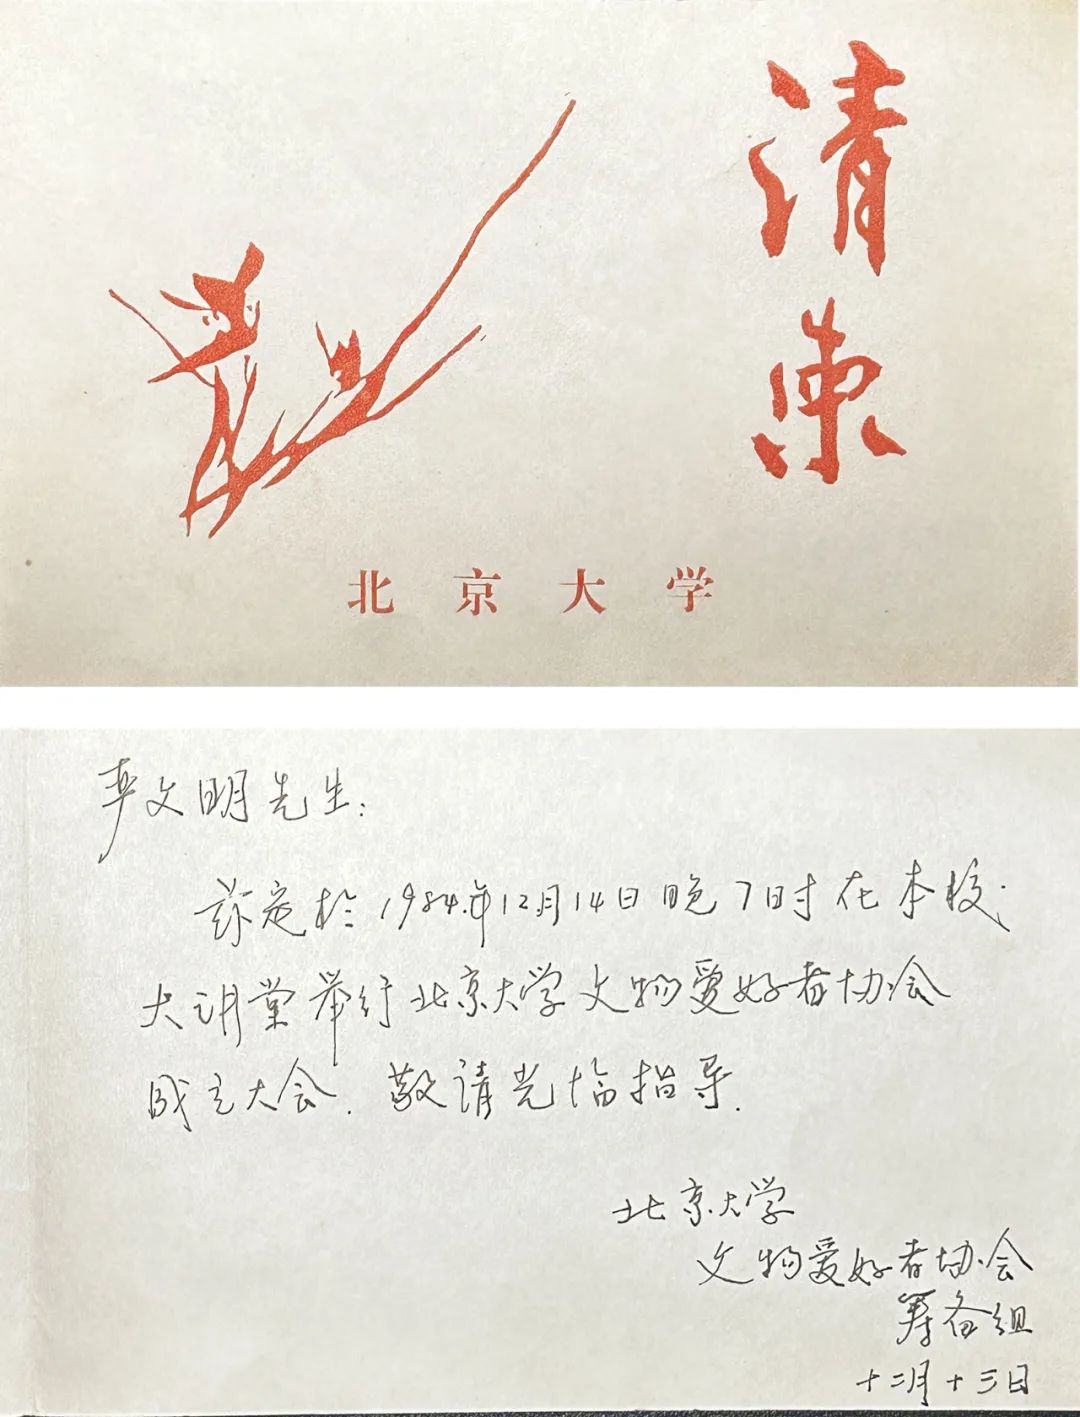 请柬
北京大学
严文明先生:
兹定於1984.年12月14日晚7时在本校
大讲堂举行北京大学文物爱好者协会
成立大会. 敬请光临指导.
北京大学
文物爱好者协会
筹备组
十二月十三日